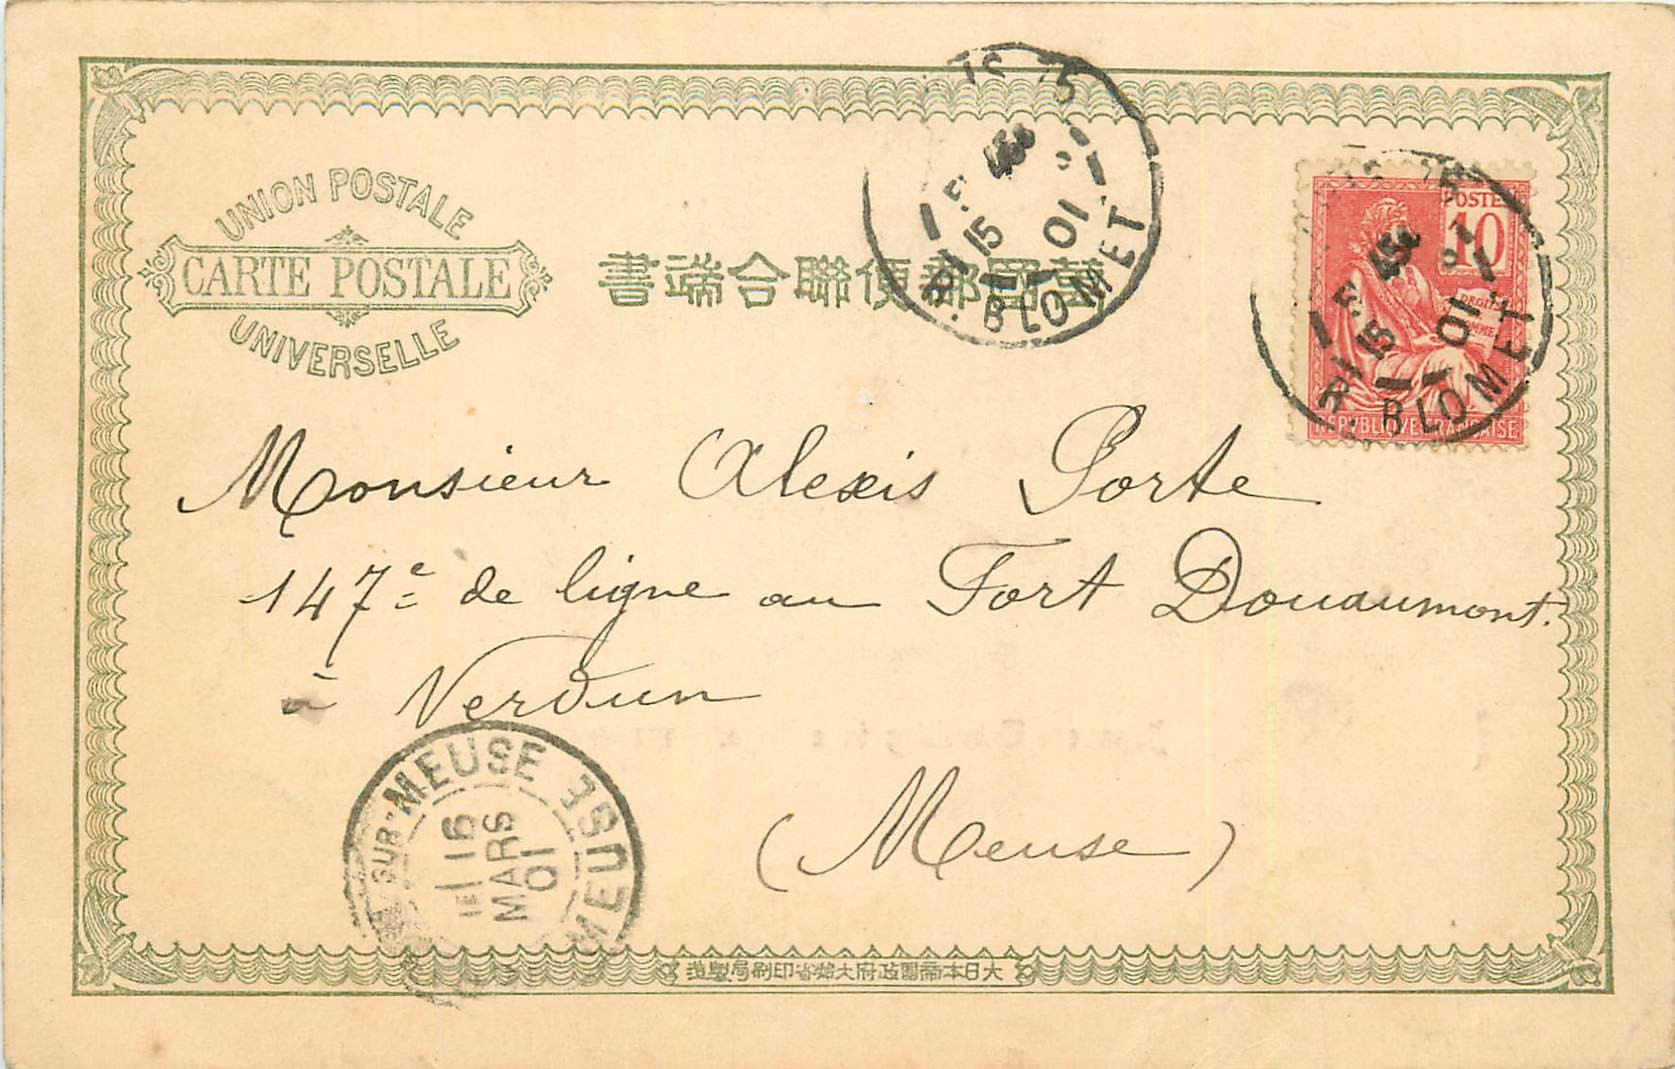 UNION POSTALE
CARTE POSTALE
UNIVERSELLE
萬國郵便聯合端書
R. BLOMET
15
01
POSTES
10
R. BLOMET
15
01
REPVBLIQVE FRANÇAISE
Monsieur Alexis Porte
147e de ligne au Fort Douaumont.
à Verdun
(Meuse)
SUR-MEUSE MEUSE
16
MARS
01
大日本帝國政府大藏省印刷局製造